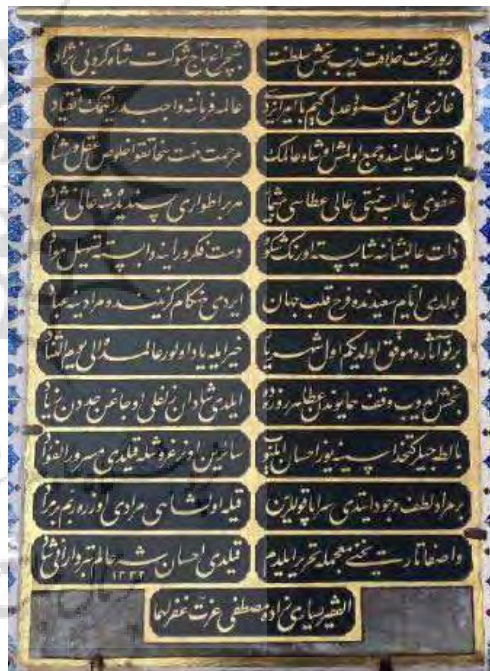 زیور تخت خلافت زیب بخش سلطنت شبچراغ تاج شوکت شاه کردونی نژاد
غازی خان محمود عدلی کیم بامر ایزدی عالمه فرماننه واجبدر ایتمک انقیاد
ذات علیاسنده جمع اولمش او شاه عالمک مرحمت همت سخا تقوا خلوص عقل و رشاد
عفوی غالب همتی عالی عطاسی بیشمار هر بر اطواری پسندیده شه عالی نژاد
ذات عالیشاننه شایسته اورنک شکوه دست فکر و راینه وابسته تسهیل مراد
بولدی ایام سعیدنده فرح قلب جهان ایردی هنکام کزیننده مرادینه عباد
بر نو آثاره موفق اولدی کیم اول شهریار خیر ایله یاد اولور عالمده الی یوم التناد
بخش ایدوب وقف همایوندن عطایا ایلدی شادان زلفلی اوجاغن حددن زیاد
بالطه جیلر کتخداسینه یوز احسان ایلیوب سائرین غروشله قیلدی مسرور الفؤاد
بر مراد لطف وجود ایتدی سراپا قوللرین قیله اول شاهی مرادی اوزره
واصفا تاریخنی معجمله تحریر ایلدم قیلدی احسان شه عالم تبردارانی شاد
١٢٢٢
الفقیر یساری زاده مصطفی عزت غفر لهما